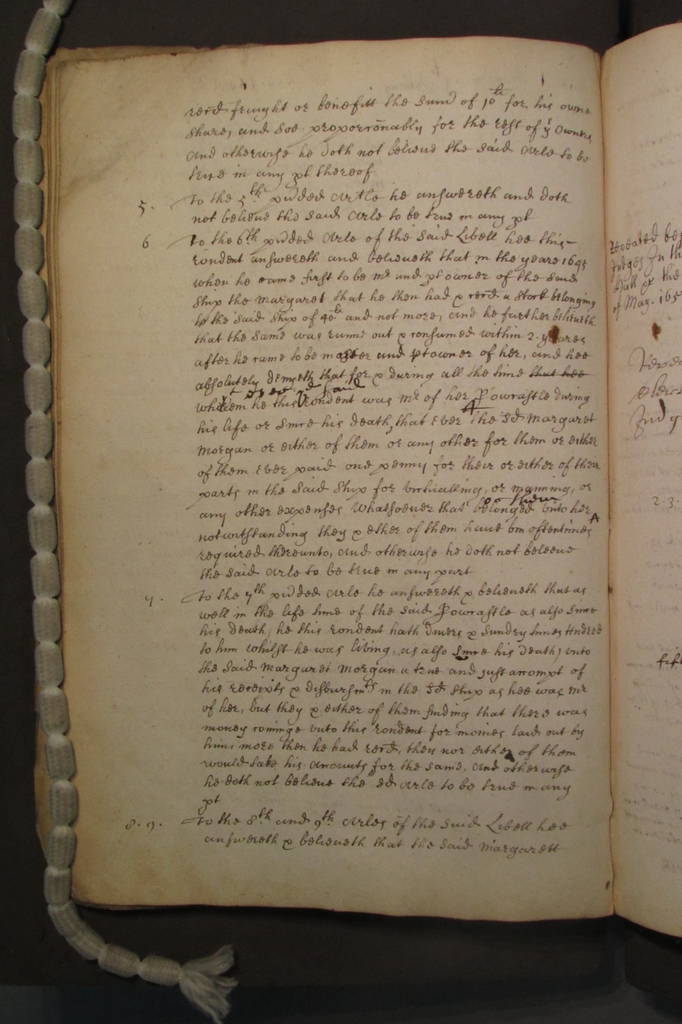 recd fraught or benefitt the sum of 10li for his owne
share, and soe proporconably for the rest of ye owners
and otherwise he doth not beleive the said arle to be
true in any pt thereof
5. To the 5th pridded artle he answereth and doth
not beleive the said arle to be true in any pt
6 To the 6th pridded arle of the said Libell hee this
rondent answereth and beleiveth that in the yeare 1645
when he came first to be mr and pt owner of the said
ship the Margaret that he then had & recd a stock belonging
to the said ship of 40li and not more, and he further beleiveth
that the same was runne out & consumed within 2. yeares
after he came to be master and ptowner of her, and hee
absolutely denyeth that for & during all the time that hee
he this rondent was mr of her Powcastle during
his life or since his death, that ever the sd Margaret
Morgan or either of them or any other for them or either
of them ever paid one penny for their or either of their
parts in the said ship for victualling, or manning, or
any other expenses whatsoever that belonged unto her
notwithstanding they & either of them have bin oftentimes
required thereunto, and otherwise he doth not beleeve
the said arle to be true in any part
7. To the 7th pridded arle he answereth & beleiveth that as
well in the life time of the said Powcastle as also since
his death, he this rondent hath divers & sundry times tendred
to him whilst he was living, as also since his death, unto
the said Margaret Morgan a true and just accompt of
his receipts & disbursmts in the sd ship as hee was mr
of her, but they & either of them finding that there was
money cominge unto this rondent for monies laid out by
him more then he had recd, they nor either of them
would take his accounts for the same, and otherwise
he doth not beleive the sd arle to be true in any
pt
8. 9. To the 8th and 9th arles of the said Libell hee
answereth & beleiveth that the said Margarett
of May. 165
2. 3.